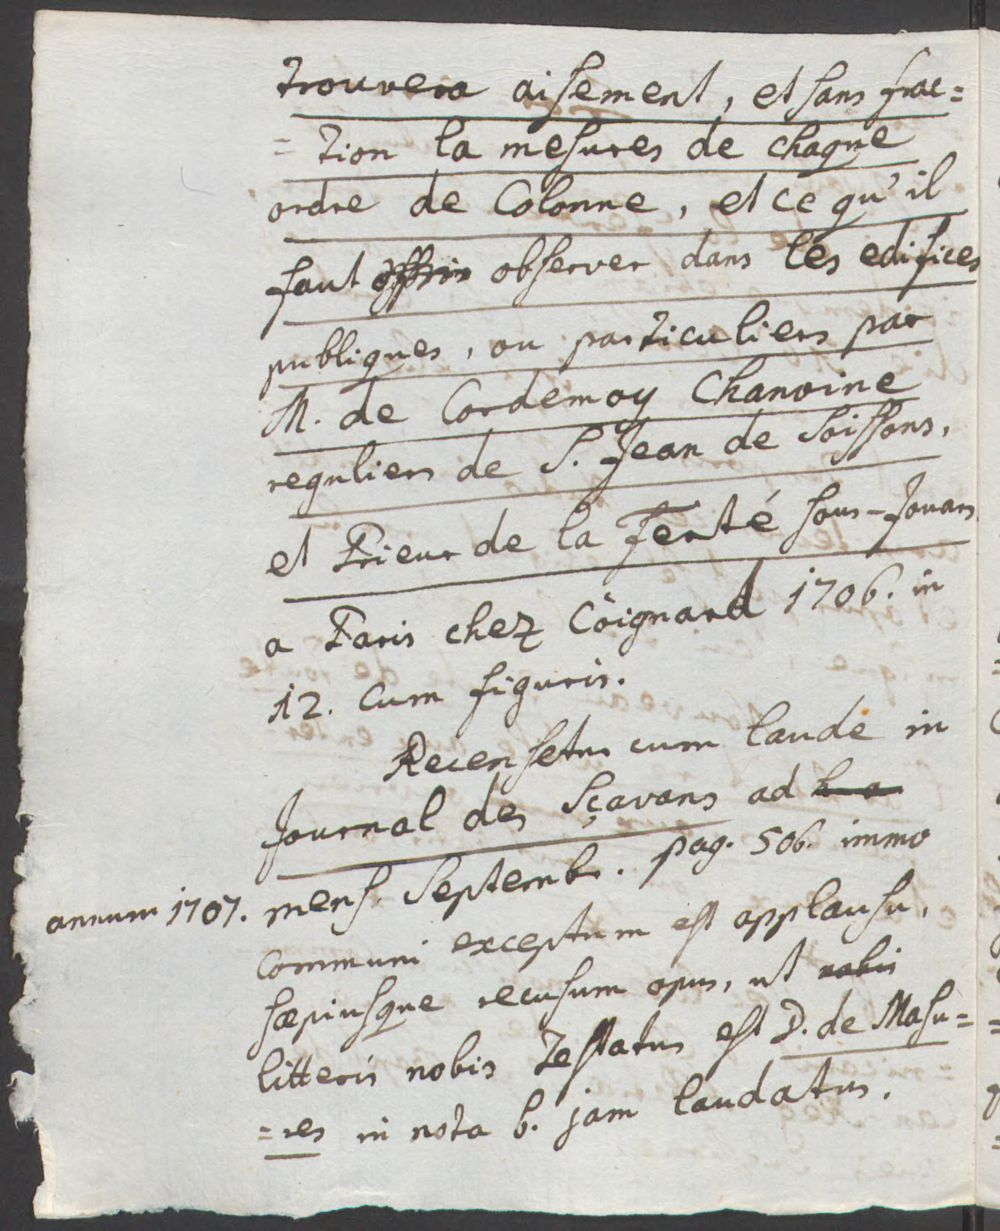 trouvera aisement, et sans frac=
= tion la mesures de chaque
ordre de Colonne, et ce qu'il
faut observer dans les edifices
publiques, ou particuliers par
M. de Cordemoy Chanoine
reguliers de S. Jean de Soissons,
et Prieur de la Ferté sous-Jouars
a Paris chez Coignard 1706. in
12. cum figuris.
Recensetur cum laude in
Journal des Sçavans ad
annum 1707. mens. Septembr. pag. 506. immo
communi exceptum est applausu,
sæpiusque recusum opus, ut nobis
litteris nobis testatus est D. de Masu=
=res in nota b. jam laudatus.